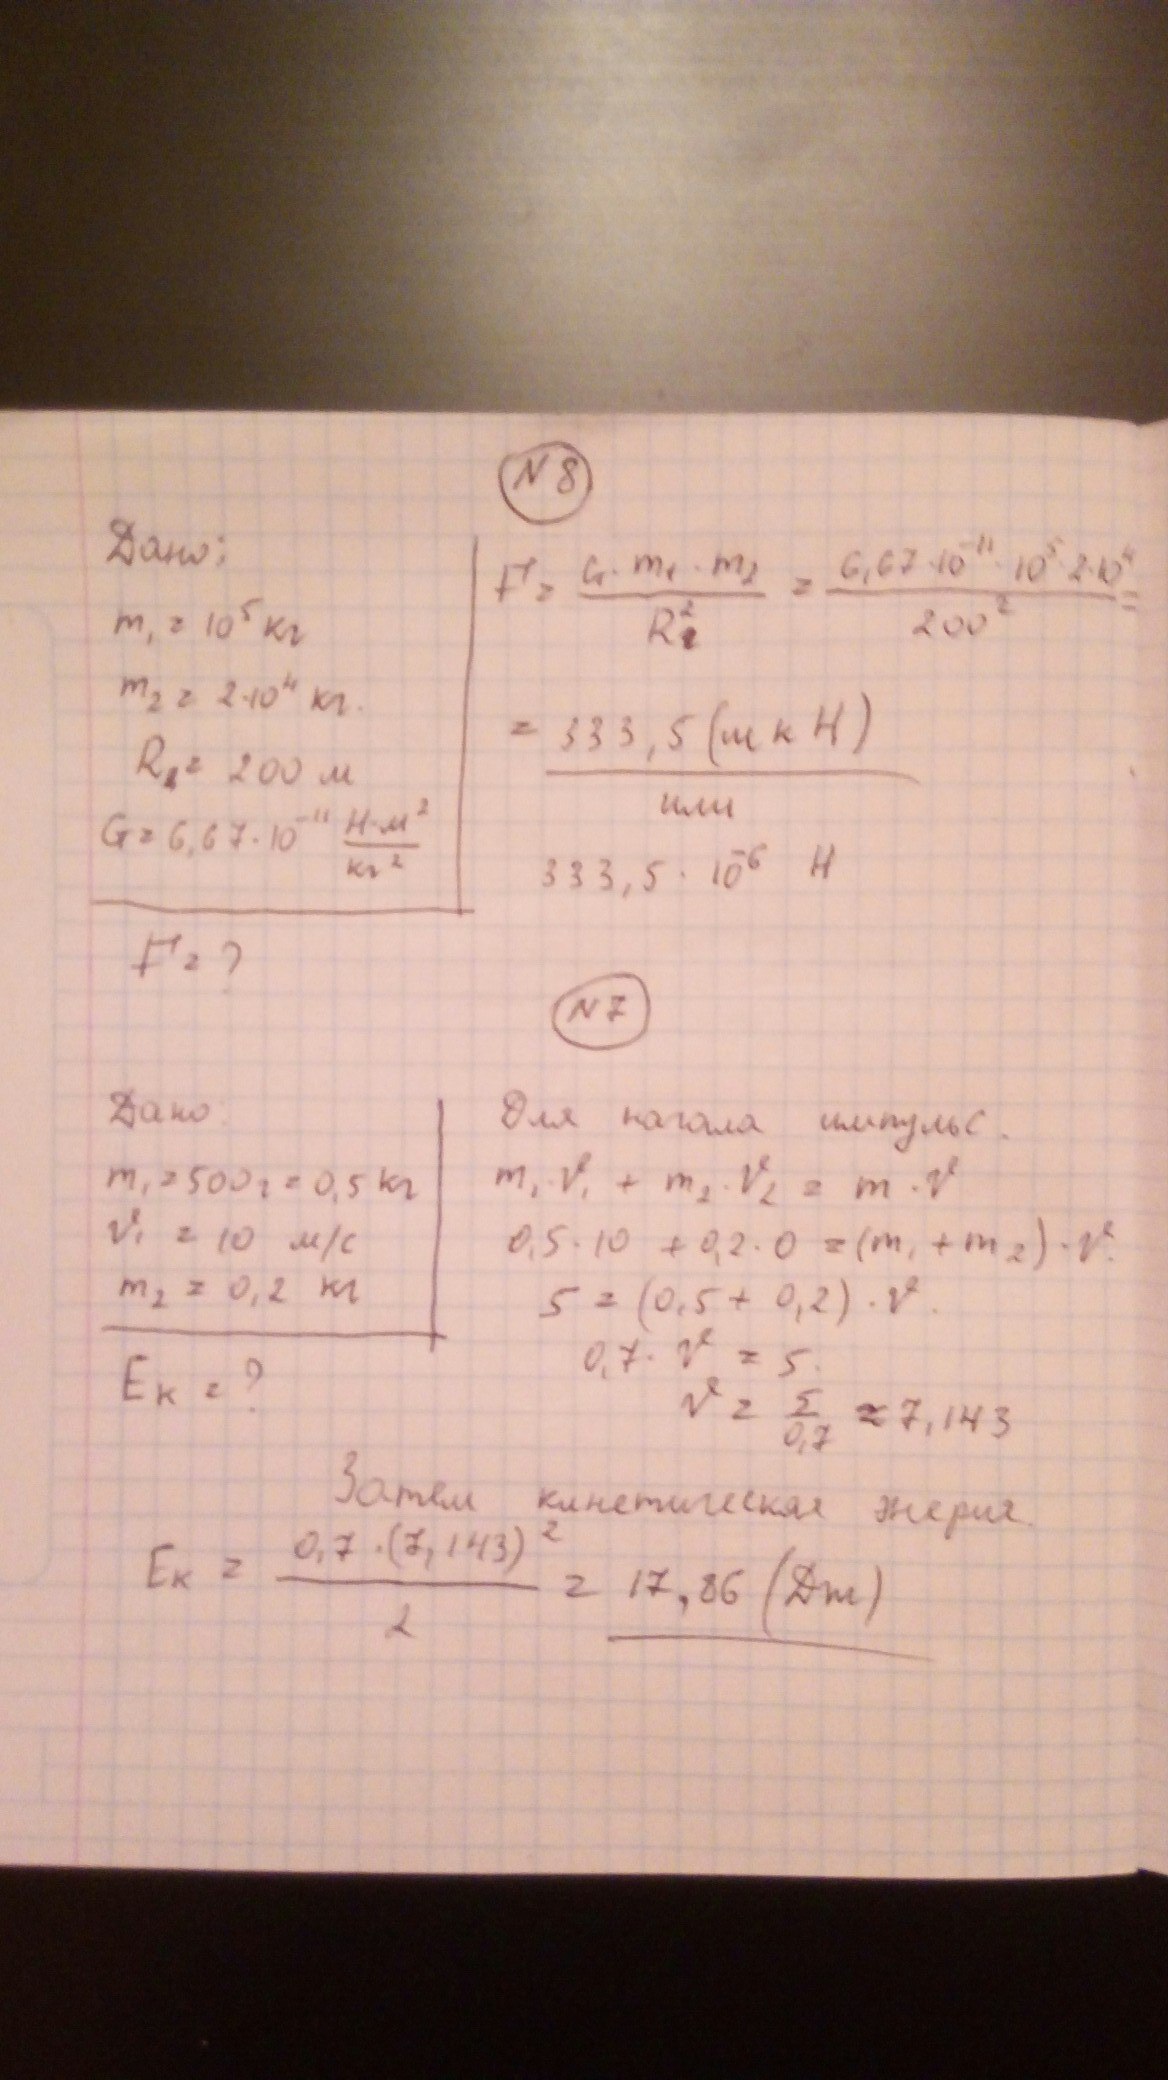 N8
Дано:
m₁ = 10⁵ кг
m₂ = 2·10⁴ кг.
R = 200 м
G = 6,67·10⁻¹¹ Н·м²/кг²
F = ?
F = G·m₁·m₂/R² = 6,67·10⁻¹¹·10⁵·2·10⁴/200² =
= 333,5 (мкН)
или
333,5·10⁻⁶ Н
N7
Дано:
m₁ = 500г = 0,5 кг
v₁ = 10 м/с
m₂ = 0,2 кг
Eк = ?
Для начала импульс.
m₁·v₁ + m₂·v₂ = m·v
0,5·10 + 0,2·0 = (m₁ + m₂)·v.
5 = (0,5 + 0,2)·v.
0,7·v = 5.
v = 5/0,7 ≈ 7,143
Затем кинетическая энергия.
Eк = 0,7·(7,143)²/2 = 17,86 (Дж)